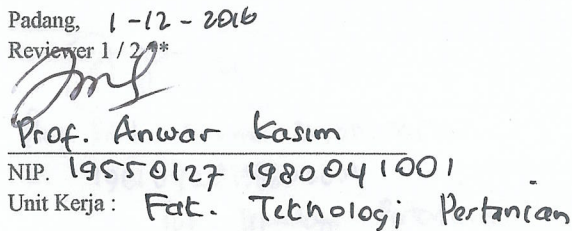 Padang, 1-12-2016
Reviewer 1 / 2 **
Prof. Anwar Kasim
NIP. 19550127 1980041001
Unit Kerja : Fak. Teknologi Pertanian